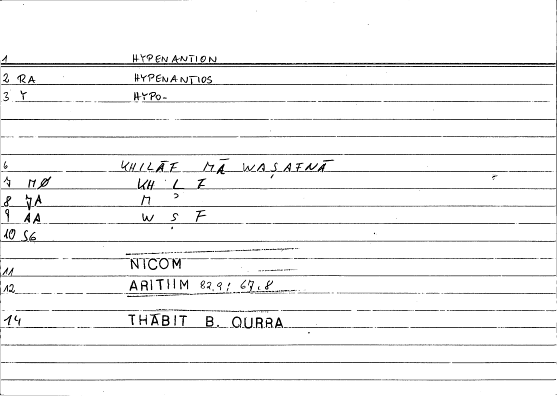 1 HYPENANTION
2 RA HYPENANTIOS
3 Y HYPO-
6 KHILĀF MĀ WAṢAFNĀ
7 MØ KH L F
8 JA M ʾ
9 AA W Ṣ F
10 S6
11 NICOM
12 ARITIIM 82.9; 67.8
14 THĀBIT B. QURRA